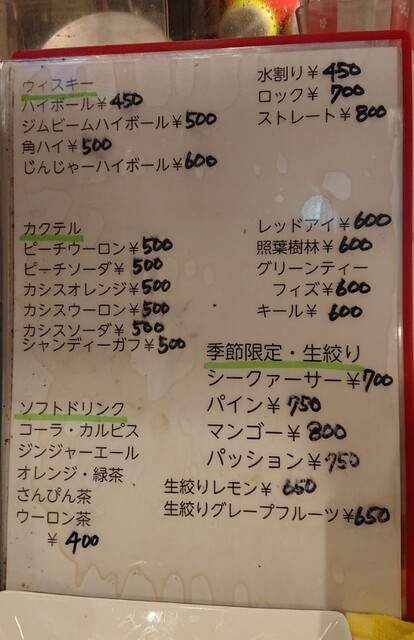 ウィスキー
ハイボール¥450
ジムビームハイボール¥500
角ハイ¥500
じんじゃーハイボール¥600
水割り¥450
ロック¥ 700
ストレート¥800
カクテル
ピーチウーロン¥500
ピーチソーダ¥ 500
カシスオレンジ¥500
カシスウーロン¥500
カシスソーダ¥ 500
シャンディーガフ¥500
レッドアイ¥600
照葉樹林¥600
グリーンティー
フィズ¥600
キール¥ 600
季節限定・生絞り
シークァーサー¥700
パイン¥ 750
マンゴー¥ 800
パッション¥750
生絞りレモン¥ 650
生絞りグレープフルーツ¥650
ソフトドリンク
コーラ・カルピス
ジンジャーエール
オレンジ・緑茶
さんぴん茶
ウーロン茶
¥ 400